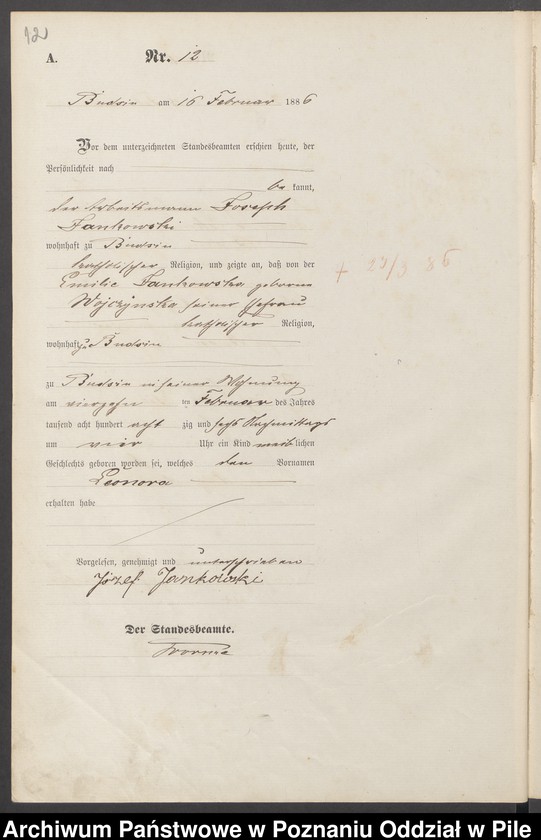 12
A. Nr. 12
Budsin am 16 Februar 1886
Vor dem unterzeichneten Standesbeamten erschien heute, der
Persönlichkeit nach
be kannt,
der Arbeitsmann Joseph
Jankowski
wohnhaft zu Budsin
katholischer Religion, und zeigte an, daß von der
Emilie Jankowska geborne
Wojczynska seiner Ehefrau
katholischer Religion,
wohnhaft zu Budsin
zu Budsin in seiner Wohnung
am vierzehn ten Februar des Jahres
tausend acht hundert acht zig und sechs Nachmittags
um vier Uhr ein Kind weib lichen
Geschlechts geboren worden sei, welches den Vornamen
Leonora
erhalten habe
Vorgelesen, genehmigt und unterschrieben
Józef Jankowski
Der Standesbeamte.
† 29/3 86
Archiwum Państwowe w Poznaniu Oddział w Pile